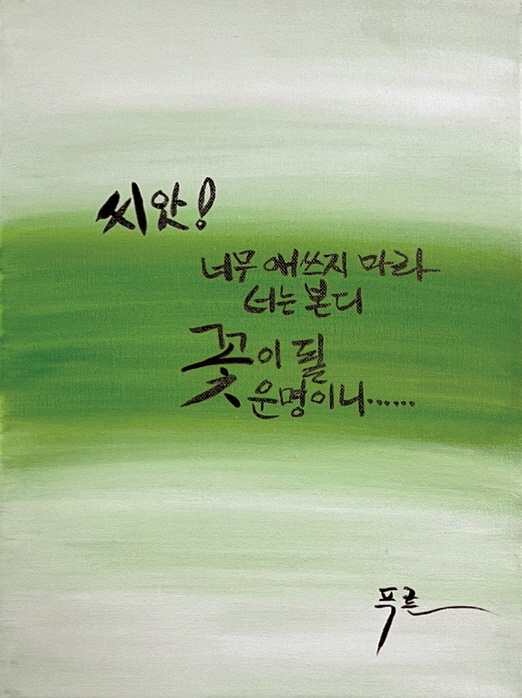 씨앗!
너무 애쓰지 마라
너는 본디
꽃이 필
운명이니......
푸른